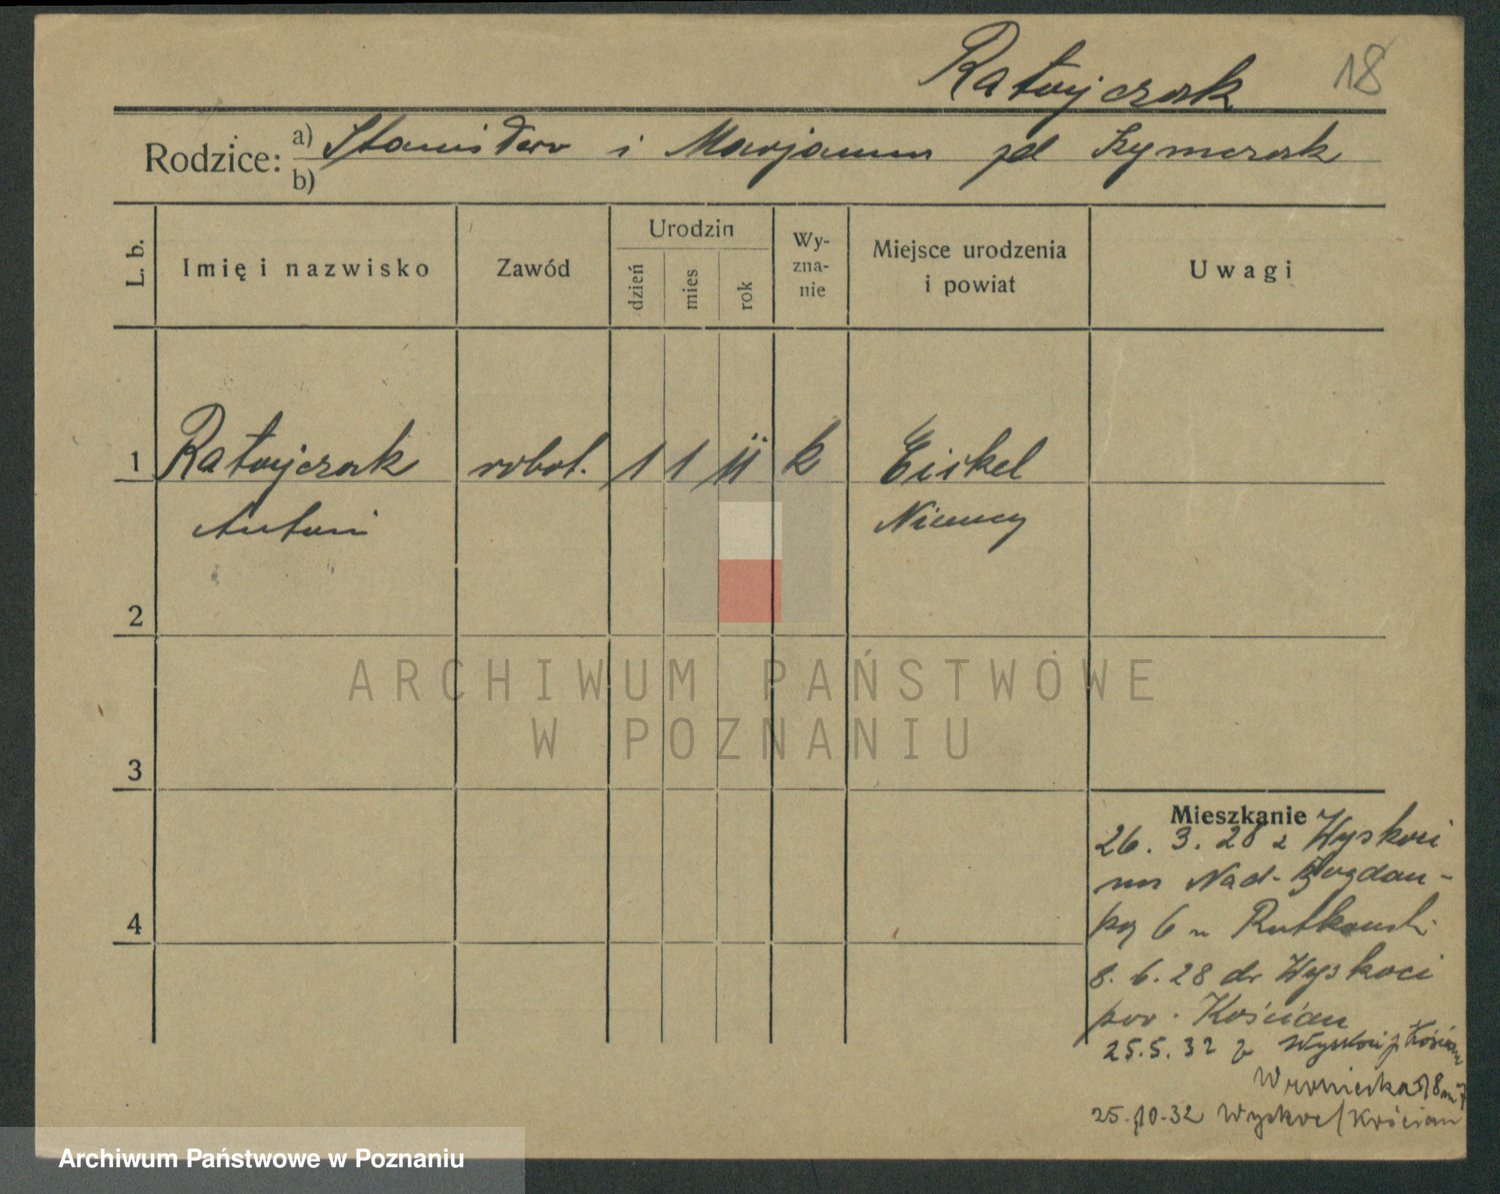 Ratajczak 18
Rodzice: a) Stanisław i Marjanna zd Szymczak
b)
L. b. Imię i nazwisko Zawód Urodzin dzień mies rok Wyznanie Miejsce urodzenia i powiat Uwagi
1 Ratajczak robot. 1 1 11 k Eickel
Antoni Niemcy
2
ARCHIWUM PAŃSTWOWE
W POZNANIU
3
Mieszkanie
26. 3. 28 z Wyskoci
na Nad-Bogdan-
ką 6 u Rutkowski
4
8. 6. 28 do Wyskoci
pow. Kościan
25.5.32 z Wyskoci p. Kościan
Wroniecka 18 m 7
25-10-32 Wyskoć/Kościan
Archiwum Państwowe w Poznaniu